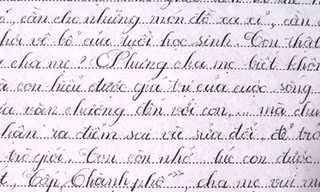 , cần cho những món đồ xa xỉ, cần c
hơi vô bổ của tuổi học sinh. Con thật
cha mẹ? Nhưng cha mẹ biết khôn
à con hiểu được giá trị của cuộc sống
ưa vấn vương đến với con, ... mà chun
hận ra điểm sai và sửa đổi, để trở
trò giỏi. Con còn nhớ lúc con được
t, Cấp Thành phố", cha mẹ vui m